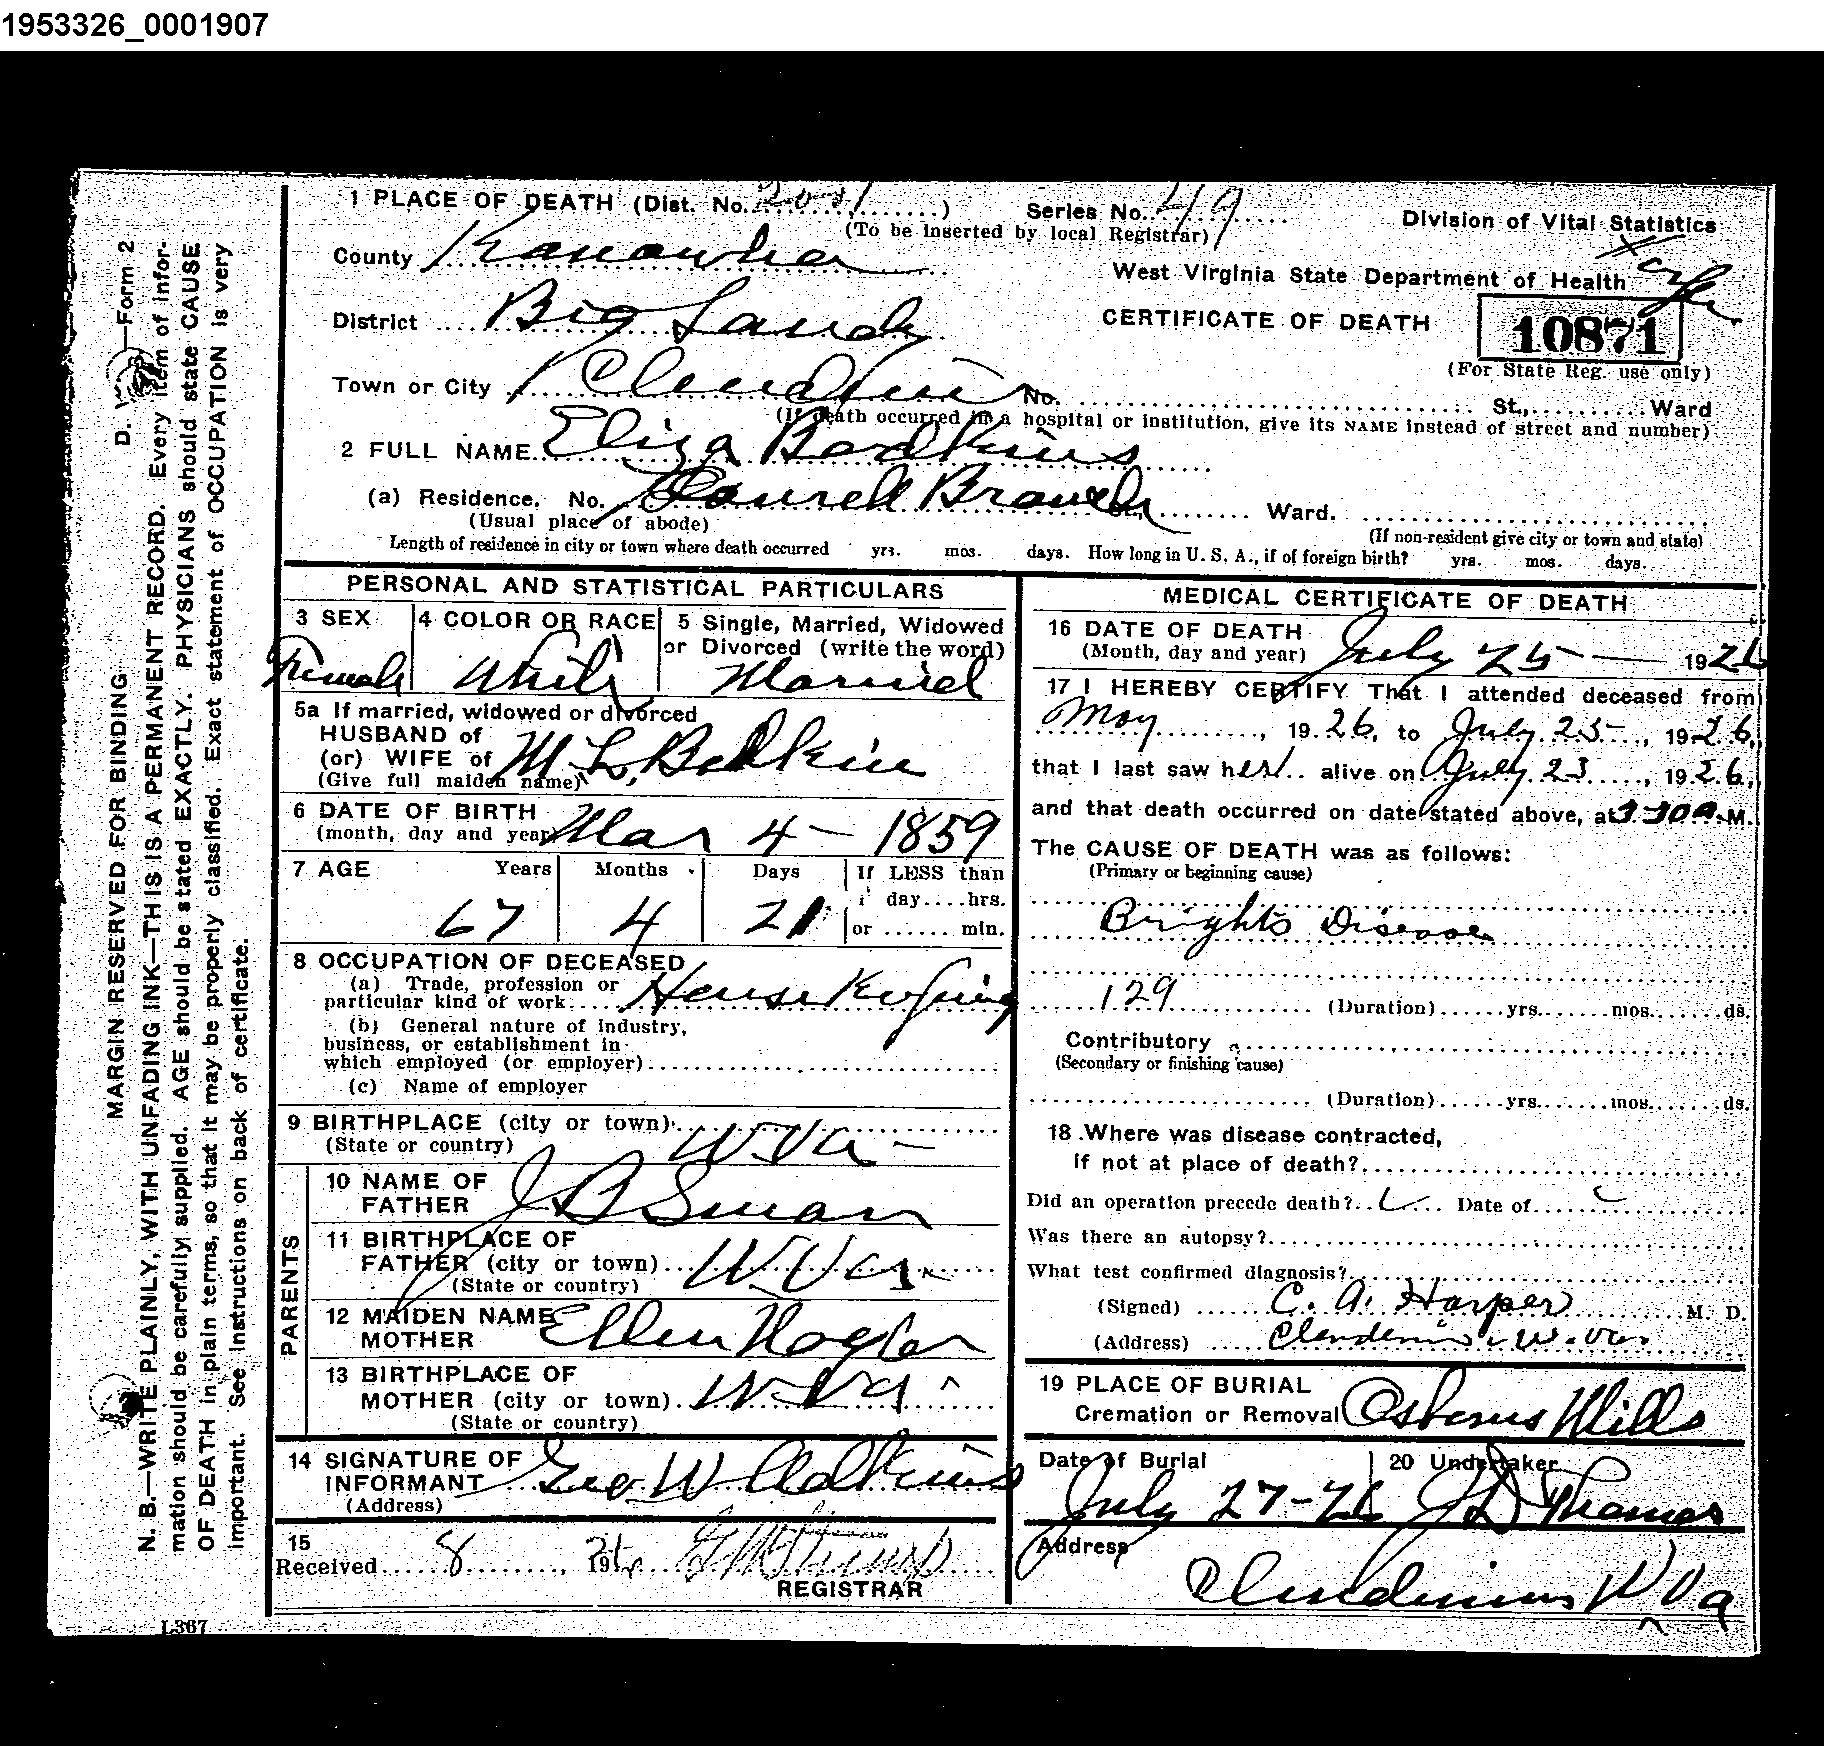 1953326_0001907
1 PLACE OF DEATH (Dist. No. 2001) Series No. 49
(To be inserted by local Registrar)
Division of Vital Statistics
County Kanawha
West Virginia State Department of Health
District Big Sandy
CERTIFICATE OF DEATH
10871
(For State Reg. use only)
Town or City Clendenin No. St., Ward
(If death occurred in a hospital or institution, give its NAME instead of street and number)
2 FULL NAME Eliza Bodkins
(a) Residence. No. Laurell Branch St., Ward.
(Usual place of abode) (If non-resident give city or town and state)
Length of residence in city or town where death occurred yrs. mos. days. How long in U. S. A., if of foreign birth? yrs. mos. days.
PERSONAL AND STATISTICAL PARTICULARS
3 SEX
Female
4 COLOR OR RACE
White
5 Single, Married, Widowed
or Divorced (write the word)
Married
5a If married, widowed or divorced
HUSBAND of
(or) WIFE of M. L. Bodkin
(Give full maiden name)
6 DATE OF BIRTH
(month, day and year) Mar 4 - 1859
7 AGE Years Months Days If LESS than
1 day....hrs.
67 4 21 or ...... min.
8 OCCUPATION OF DECEASED
(a) Trade, profession or
particular kind of work House Keeping
(b) General nature of Industry,
business, or establishment in
which employed (or employer)
(c) Name of employer
9 BIRTHPLACE (city or town)
(State or country) W. Va -
PARENTS
10 NAME OF
FATHER J B Smar
11 BIRTHPLACE OF
FATHER (city or town) W. Va.
(State or country)
12 MAIDEN NAME
MOTHER Ellen Hogler
13 BIRTHPLACE OF
MOTHER (city or town) W. Va.
(State or country)
14 SIGNATURE OF
INFORMANT Geo W Adkins
(Address)
15
Received 8, 1926
REGISTRAR
MEDICAL CERTIFICATE OF DEATH
16 DATE OF DEATH
(Month, day and year) July 25 - 1926
17 I HEREBY CERTIFY That I attended deceased from
May, 1926, to July 25, 1926,
that I last saw her alive on July 23, 1926,
and that death occurred on date stated above, at 3 30 A. M.
The CAUSE OF DEATH was as follows:
(Primary or beginning cause)
Brights Disease
129 (Duration) yrs. mos. ds.
Contributory
(Secondary or finishing cause)
(Duration) yrs. mos. ds.
18 Where was disease contracted,
if not at place of death?
Did an operation precede death? Date of
Was there an autopsy?
What test confirmed diagnosis?
(Signed) C. A. Harper M. D.
(Address) Clendenin, W. Va.
19 PLACE OF BURIAL
Cremation or Removal Osbornes Mills
Date of Burial
July 27-26
20 Undertaker
J D Thomas
Address
Clendenin W Va
D. —Form 2
MARGIN RESERVED FOR BINDING
N. B.—WRITE PLAINLY, WITH UNFADING INK—THIS IS A PERMANENT RECORD. Every item of infor-
mation should be carefully supplied. AGE should be stated EXACTLY. PHYSICIANS should state CAUSE
OF DEATH in plain terms, so that it may be properly classified. Exact statement of OCCUPATION is very
important. See instructions on back of certificate.
L367